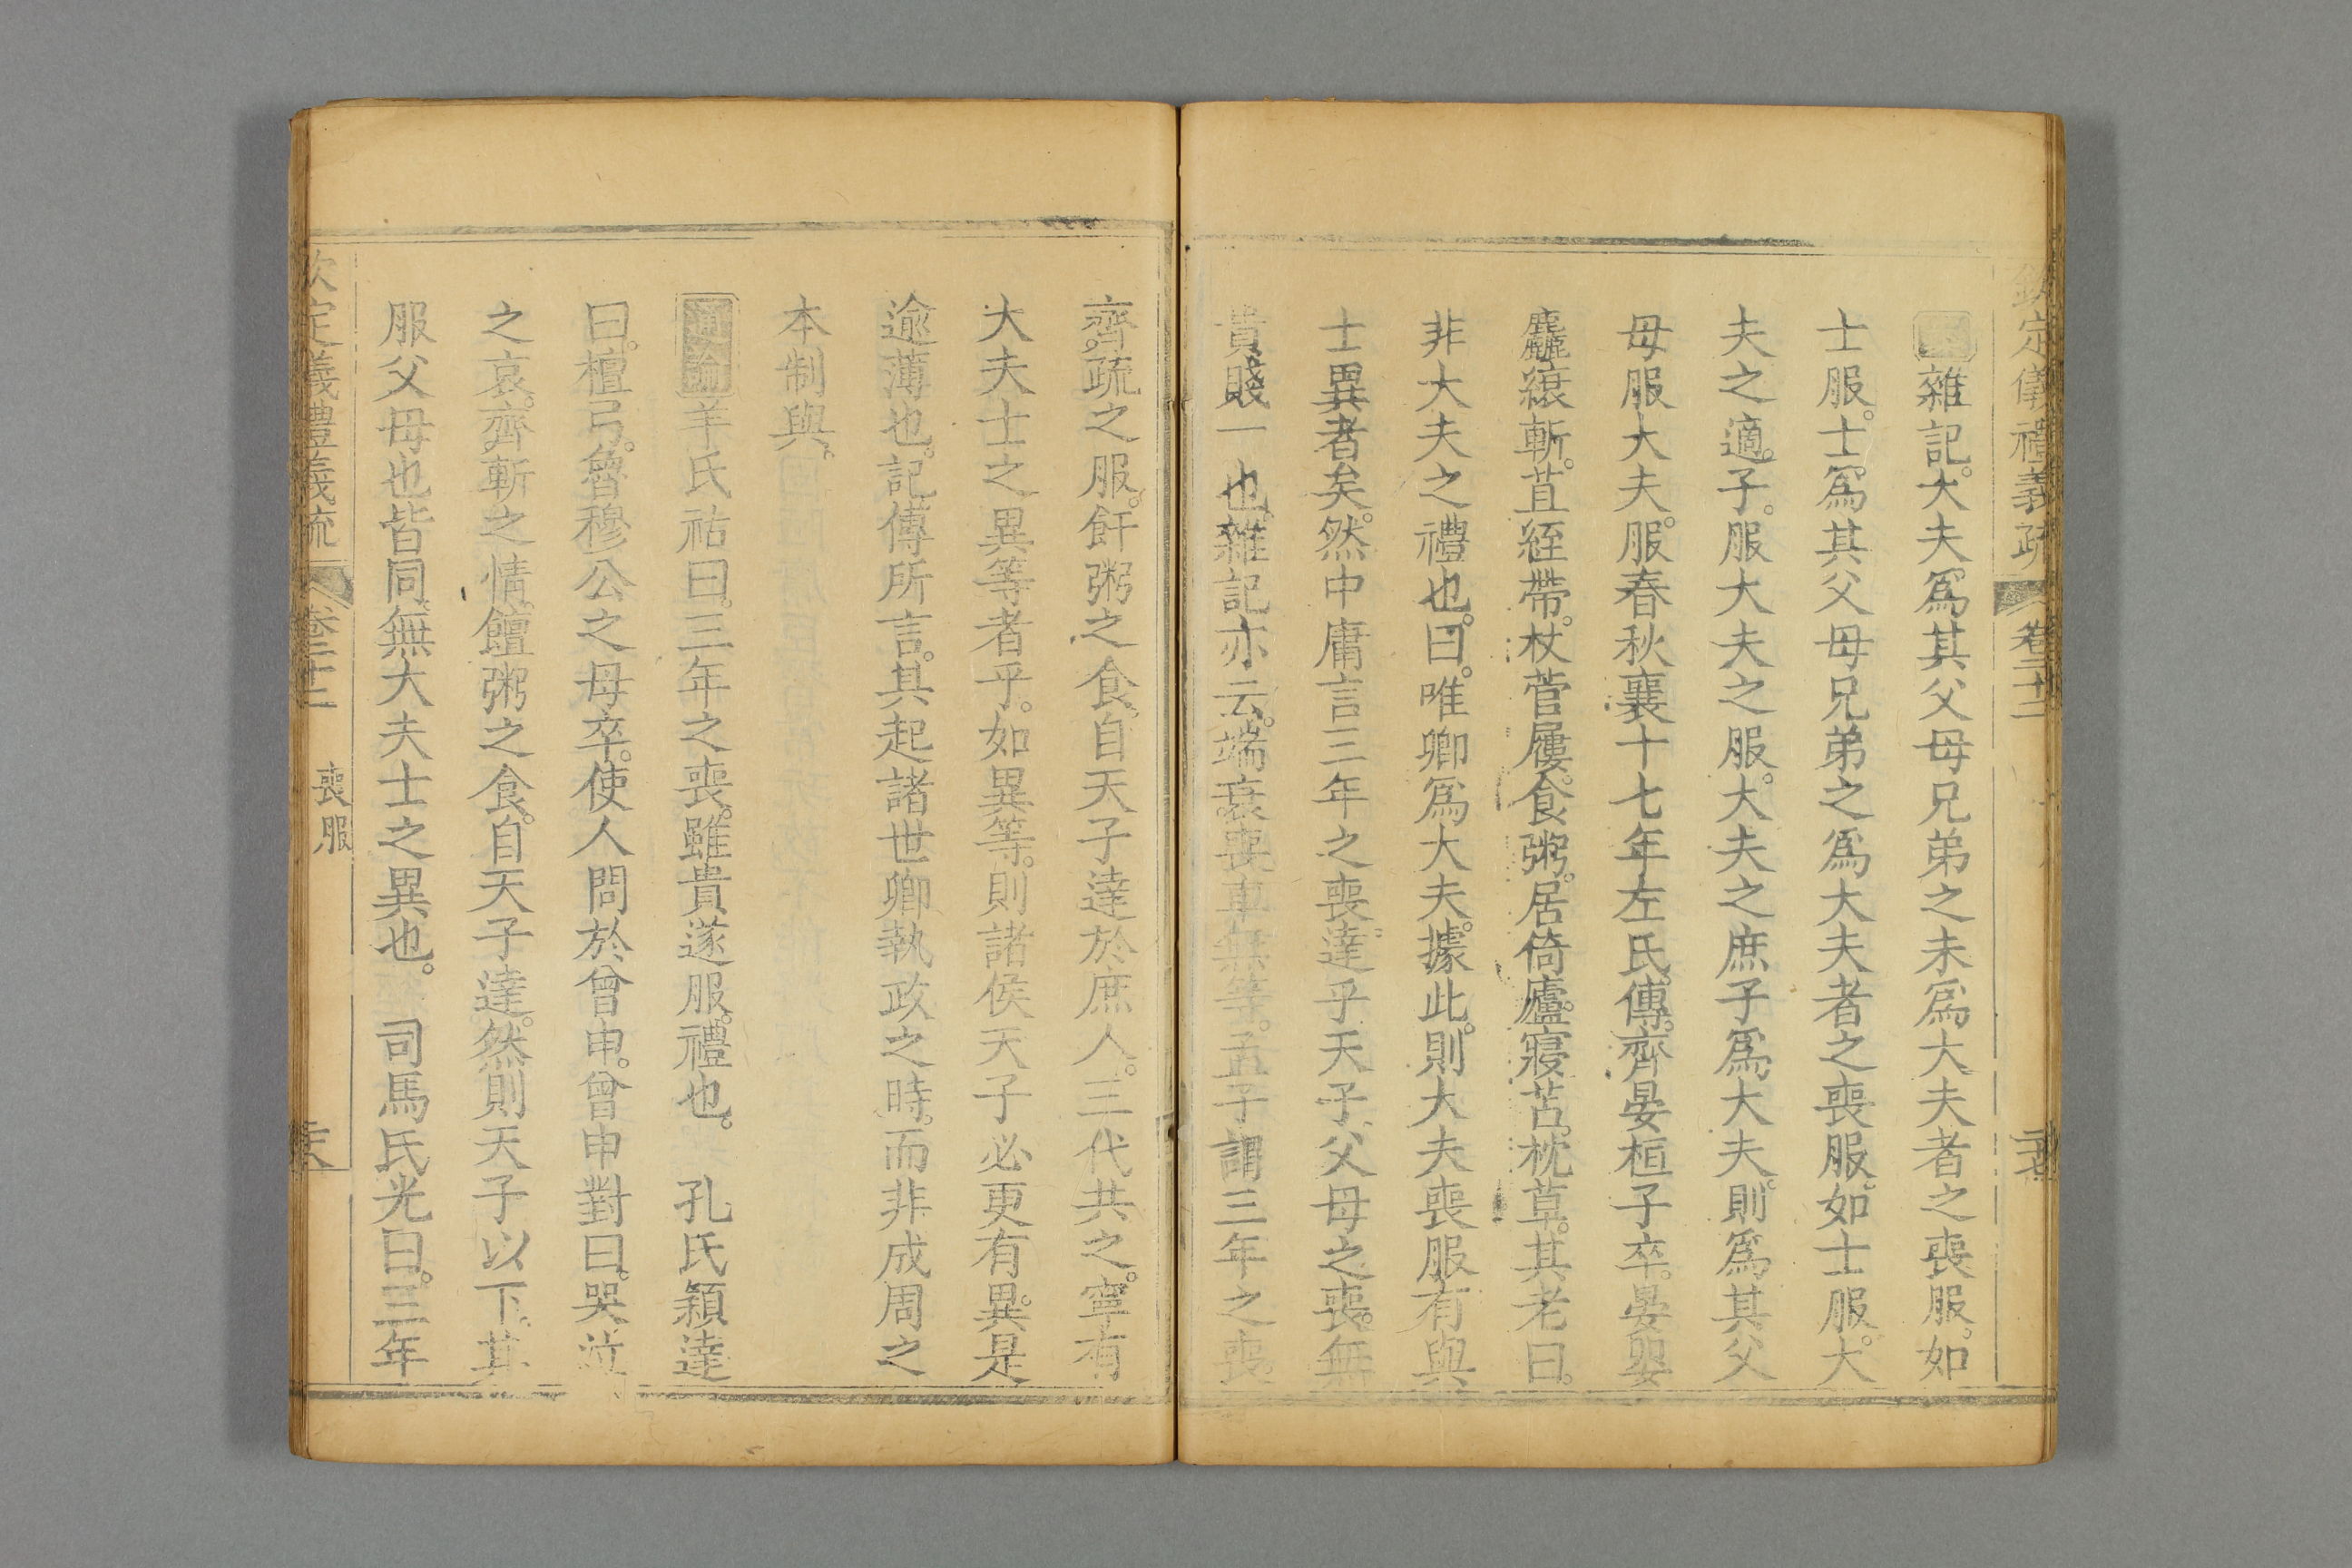 欽定儀禮義疏 卷二十二
雜記。大夫爲其父母兄弟之未爲大夫者之喪服。如
士服。士爲其父母兄弟之爲大夫者之喪服。如士服。大
夫之適子。服大夫之服。大夫之庶子爲大夫。則爲其父
母服大夫。服春秋襄十七年左氏傳。齊晏桓子卒。晏嬰
麤縗斬。苴絰帶。杖菅屨。食粥。居倚廬。寢苫。枕草。其老曰。
非大夫之禮也。曰。唯卿爲大夫。據此。則大夫喪服有與
士異者矣。然中庸言三年之喪。達乎天子。父母之喪。無
貴賤一也。雜記亦云。端衰。喪車無等。孟子謂三年之喪。
齊。疏之服。飦粥之食。自天子達於庶人。三代共之。寧有
大夫士之異等者乎。如異等。則諸侯天子必更有異。是
逾薄也。記傳所言。其起諸世卿執政之時。而非成周之
本制與。
通論羊氏祜曰。三年之喪。雖貴遂服。禮也。 孔氏穎達
曰。檀弓。魯穆公之母卒。使人問於曾申。曾申對曰。哭泣
之哀。齊斬之情。饘粥之食。自天子達。然則天子以下。其
服父母也皆同。無大夫士之異也。 司馬氏光曰。三年
欽定儀禮義疏 卷二十二 喪服